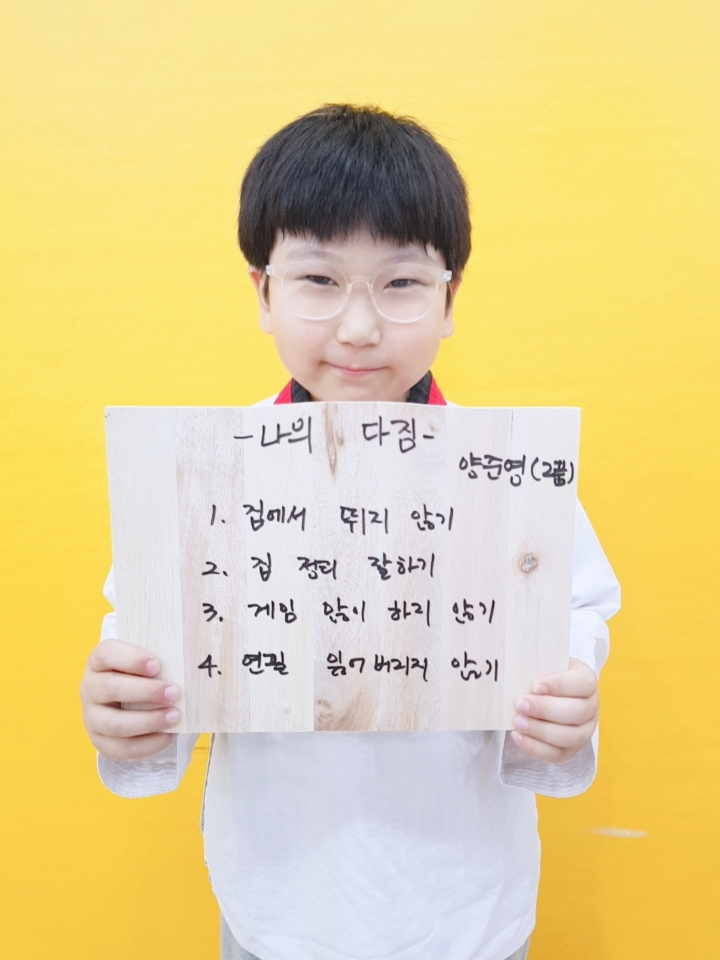 -나의 다짐-
양준영(2품)
1. 집에서 뛰지 않기
2. 집 정리 잘하기
3. 게임 많이 하지 않기
4. 연필 않기